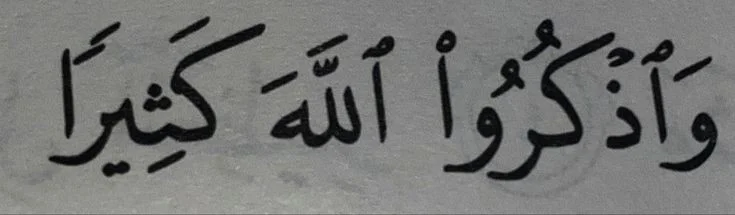 وَٱذْكُرُوا۟ ٱللَّهَ كَثِيرًا